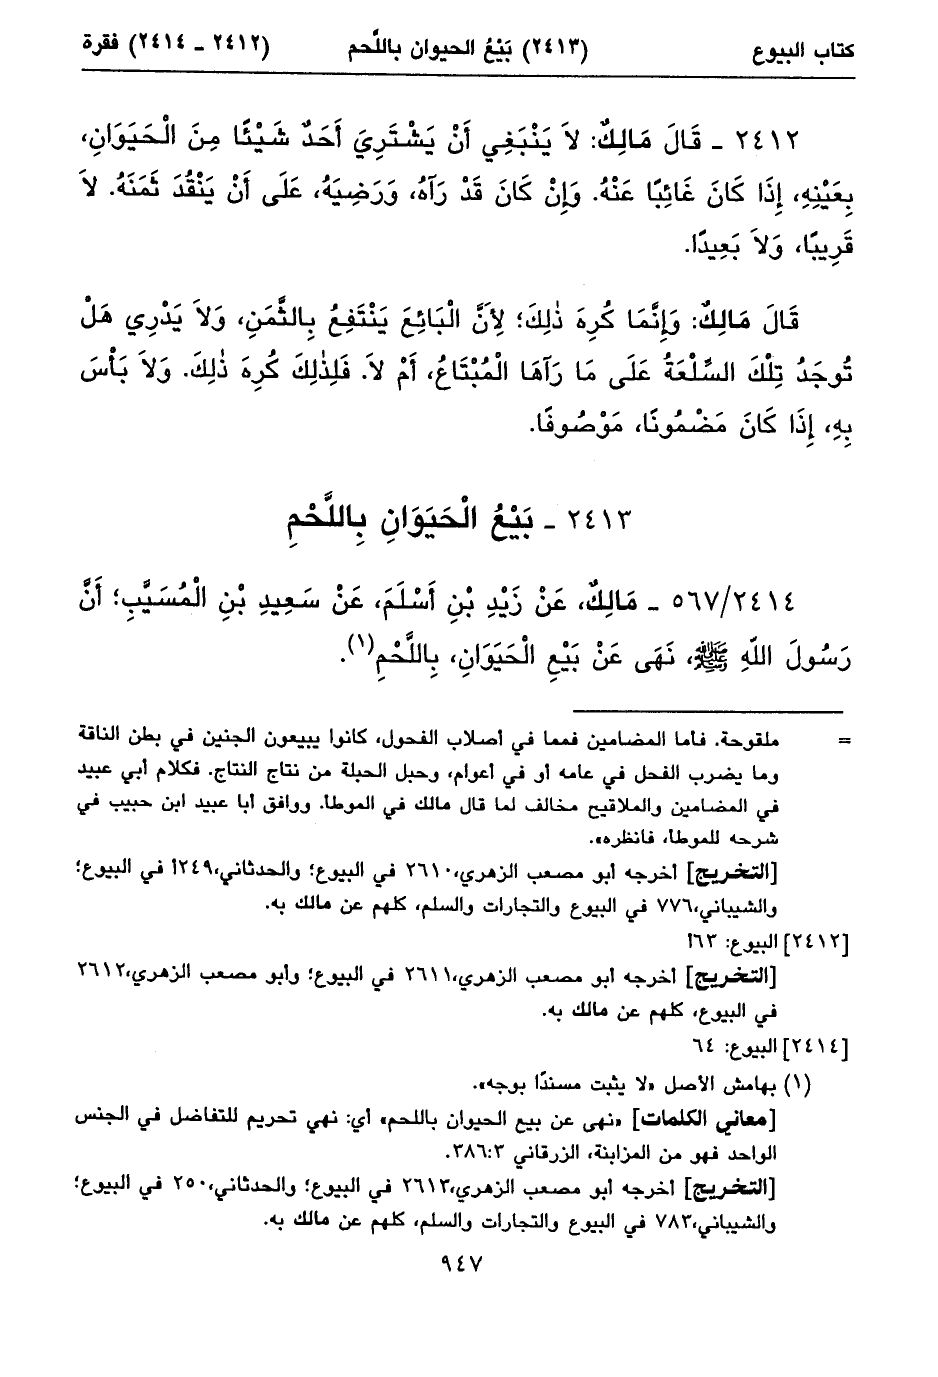 كتاب البيوع (٢٤١٣) بَيْعُ الحيوان باللَّحم (٢٤١٢ ـ ٢٤١٤) فقرة
٢٤١٢ ـ قَالَ مَالِكٌ: لاَ يَنْبَغِي أَنْ يَشْتَرِيَ أَحَدٌ شَيْئًا مِنَ الْحَيَوَانِ،
بِعَيْنِهِ، إِذَا كَانَ غَائِبًا عَنْهُ. وَإِنْ كَانَ قَدْ رَآهُ، وَرَضِيَهُ، عَلَى أَنْ يَنْقُدَ ثَمَنَهُ. لاَ
قَرِيبًا، وَلاَ بَعِيدًا.
قَالَ مَالِكٌ: وَإِنَّمَا كُرِهَ ذٰلِكَ؛ لِأَنَّ الْبَائِعَ يَنْتَفِعُ بِالثَّمَنِ، وَلاَ يَدْرِي هَلْ
تُوجَدُ تِلْكَ السِّلْعَةُ عَلَى مَا رَآهَا الْمُبْتَاعُ، أَمْ لاَ. فَلِذٰلِكَ كُرِهَ ذٰلِكَ. وَلاَ بَأْسَ
بِهِ، إِذَا كَانَ مَضْمُونًا، مَوْصُوفًا.
٢٤١٣ ـ بَيْعُ الْحَيَوَانِ بِاللَّحْمِ
٥٦٧/٢٤١٤ ـ مَالِكٌ، عَنْ زَيْدِ بْنِ أَسْلَمَ، عَنْ سَعِيدِ بْنِ الْمُسَيَّبِ؛ أَنَّ
رَسُولَ اللّهِ ﷺ، نَهَى عَنْ بَيْعِ الْحَيَوَانِ، بِاللَّحْمِ(١).
= ملقوحة. فأما المضامين فمما في أصلاب الفحول، كانوا يبيعون الجنين في بطن الناقة
وما يضرب الفحل في عامه أو في أعوام، وحبل الحبلة من نتاج النتاج. فكلام أبي عبيد
في المضامين والملاقيح مخالف لما قال مالك في الموطأ. ووافق أبا عبيد ابن حبيب في
شرحه للموطأ، فانظره».
[التخريج] أخرجه أبو مصعب الزهري،٢٦١٠ في البيوع؛ والحدثاني،٢٤٩أ في البيوع؛
والشيباني،٧٧٦ في البيوع والتجارات والسلم، كلهم عن مالك به.
[٢٤١٢] البيوع: ٦٣أ
[التخريج] أخرجه أبو مصعب الزهري،٢٦١١ في البيوع؛ وأبو مصعب الزهري،٢٦١٢
في البيوع، كلهم عن مالك به.
[٢٤١٤] البيوع: ٦٤
(١) بهامش الأصل «لا يثبت مسندًا بوجه».
[معاني الكلمات] «نهى عن بيع الحيوان باللحم» أي: نهي تحريم للتفاضل في الجنس
الواحد فهو من المزابنة، الزرقاني ٣٨٦:٣.
[التخريج] أخرجه أبو مصعب الزهري،٢٦١٣ في البيوع؛ والحدثاني،٢٥٠ في البيوع؛
والشيباني،٧٨٣ في البيوع والتجارات والسلم، كلهم عن مالك به.
٩٤٧